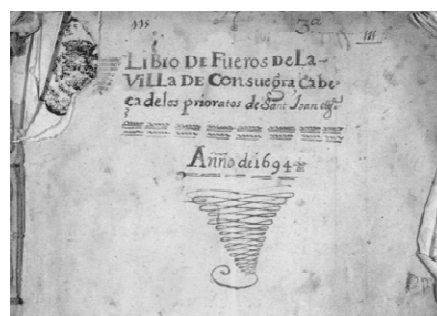 3ª
LiBro DE Fueros DE La-
VillA DE Consuegra Cabe-
ça de los prioratos de Sant Joan
Añño de 1694